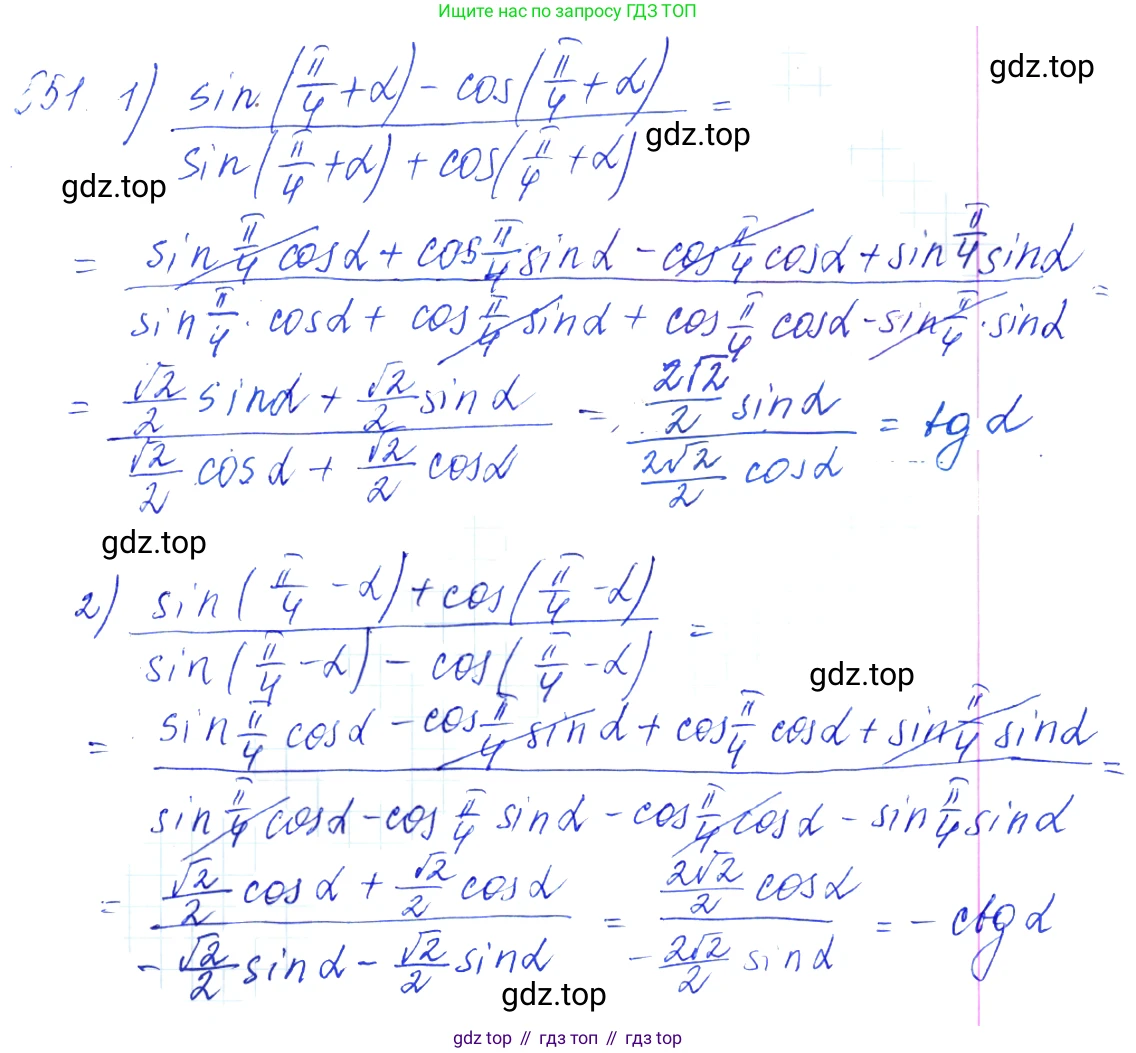 Ищите нас по запросу ГДЗ ТОП
gdz.top
551. 1) (sin(π/4 + α) - cos(π/4 + α)) / (sin(π/4 + α) + cos(π/4 + α)) =
gdz.top
gdz.top
= (sin π/4 cos α + cos π/4 sin α - cos π/4 cos α + sin π/4 sin α) / (sin π/4 · cos α + cos π/4 sin α + cos π/4 cos α - sin π/4 · sin α) =
= (√2/2 sin α + √2/2 sin α) / (√2/2 cos α + √2/2 cos α) = (2√2/2 sin α) / (2√2/2 cos α) = tg α
gdz.top
2) (sin(π/4 - α) + cos(π/4 - α)) / (sin(π/4 - α) - cos(π/4 - α)) =
gdz.top
= (sin π/4 cos α - cos π/4 sin α + cos π/4 cos α + sin π/4 sin α) / (sin π/4 cos α - cos π/4 sin α - cos π/4 cos α - sin π/4 sin α) =
= (√2/2 cos α + √2/2 cos α) / (-√2/2 sin α - √2/2 sin α) = (2√2/2 cos α) / (-2√2/2 sin α) = - ctg α
gdz.top
gdz.top // гдз топ // gdz top